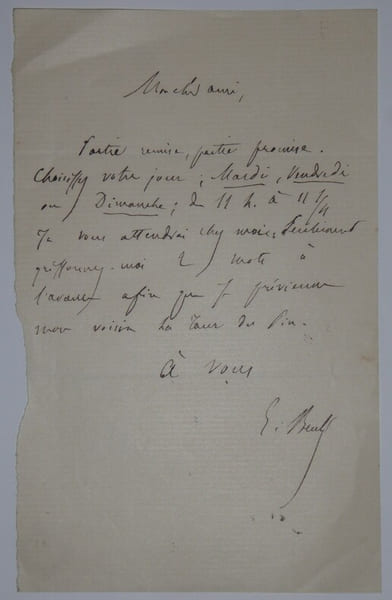 Mon cher ami,
Partie remise, partie promise.
Choisissez votre jour; Mardi, Vendredi
ou Dimanche; de 11 h. à 11 1/2
Je vous attendrai chez moi. Seulement
griffonnez-moi 2 mots à
l'avance afin que je prévienne
mon voisin La Tour du Pin.
À vous
E. Beulé